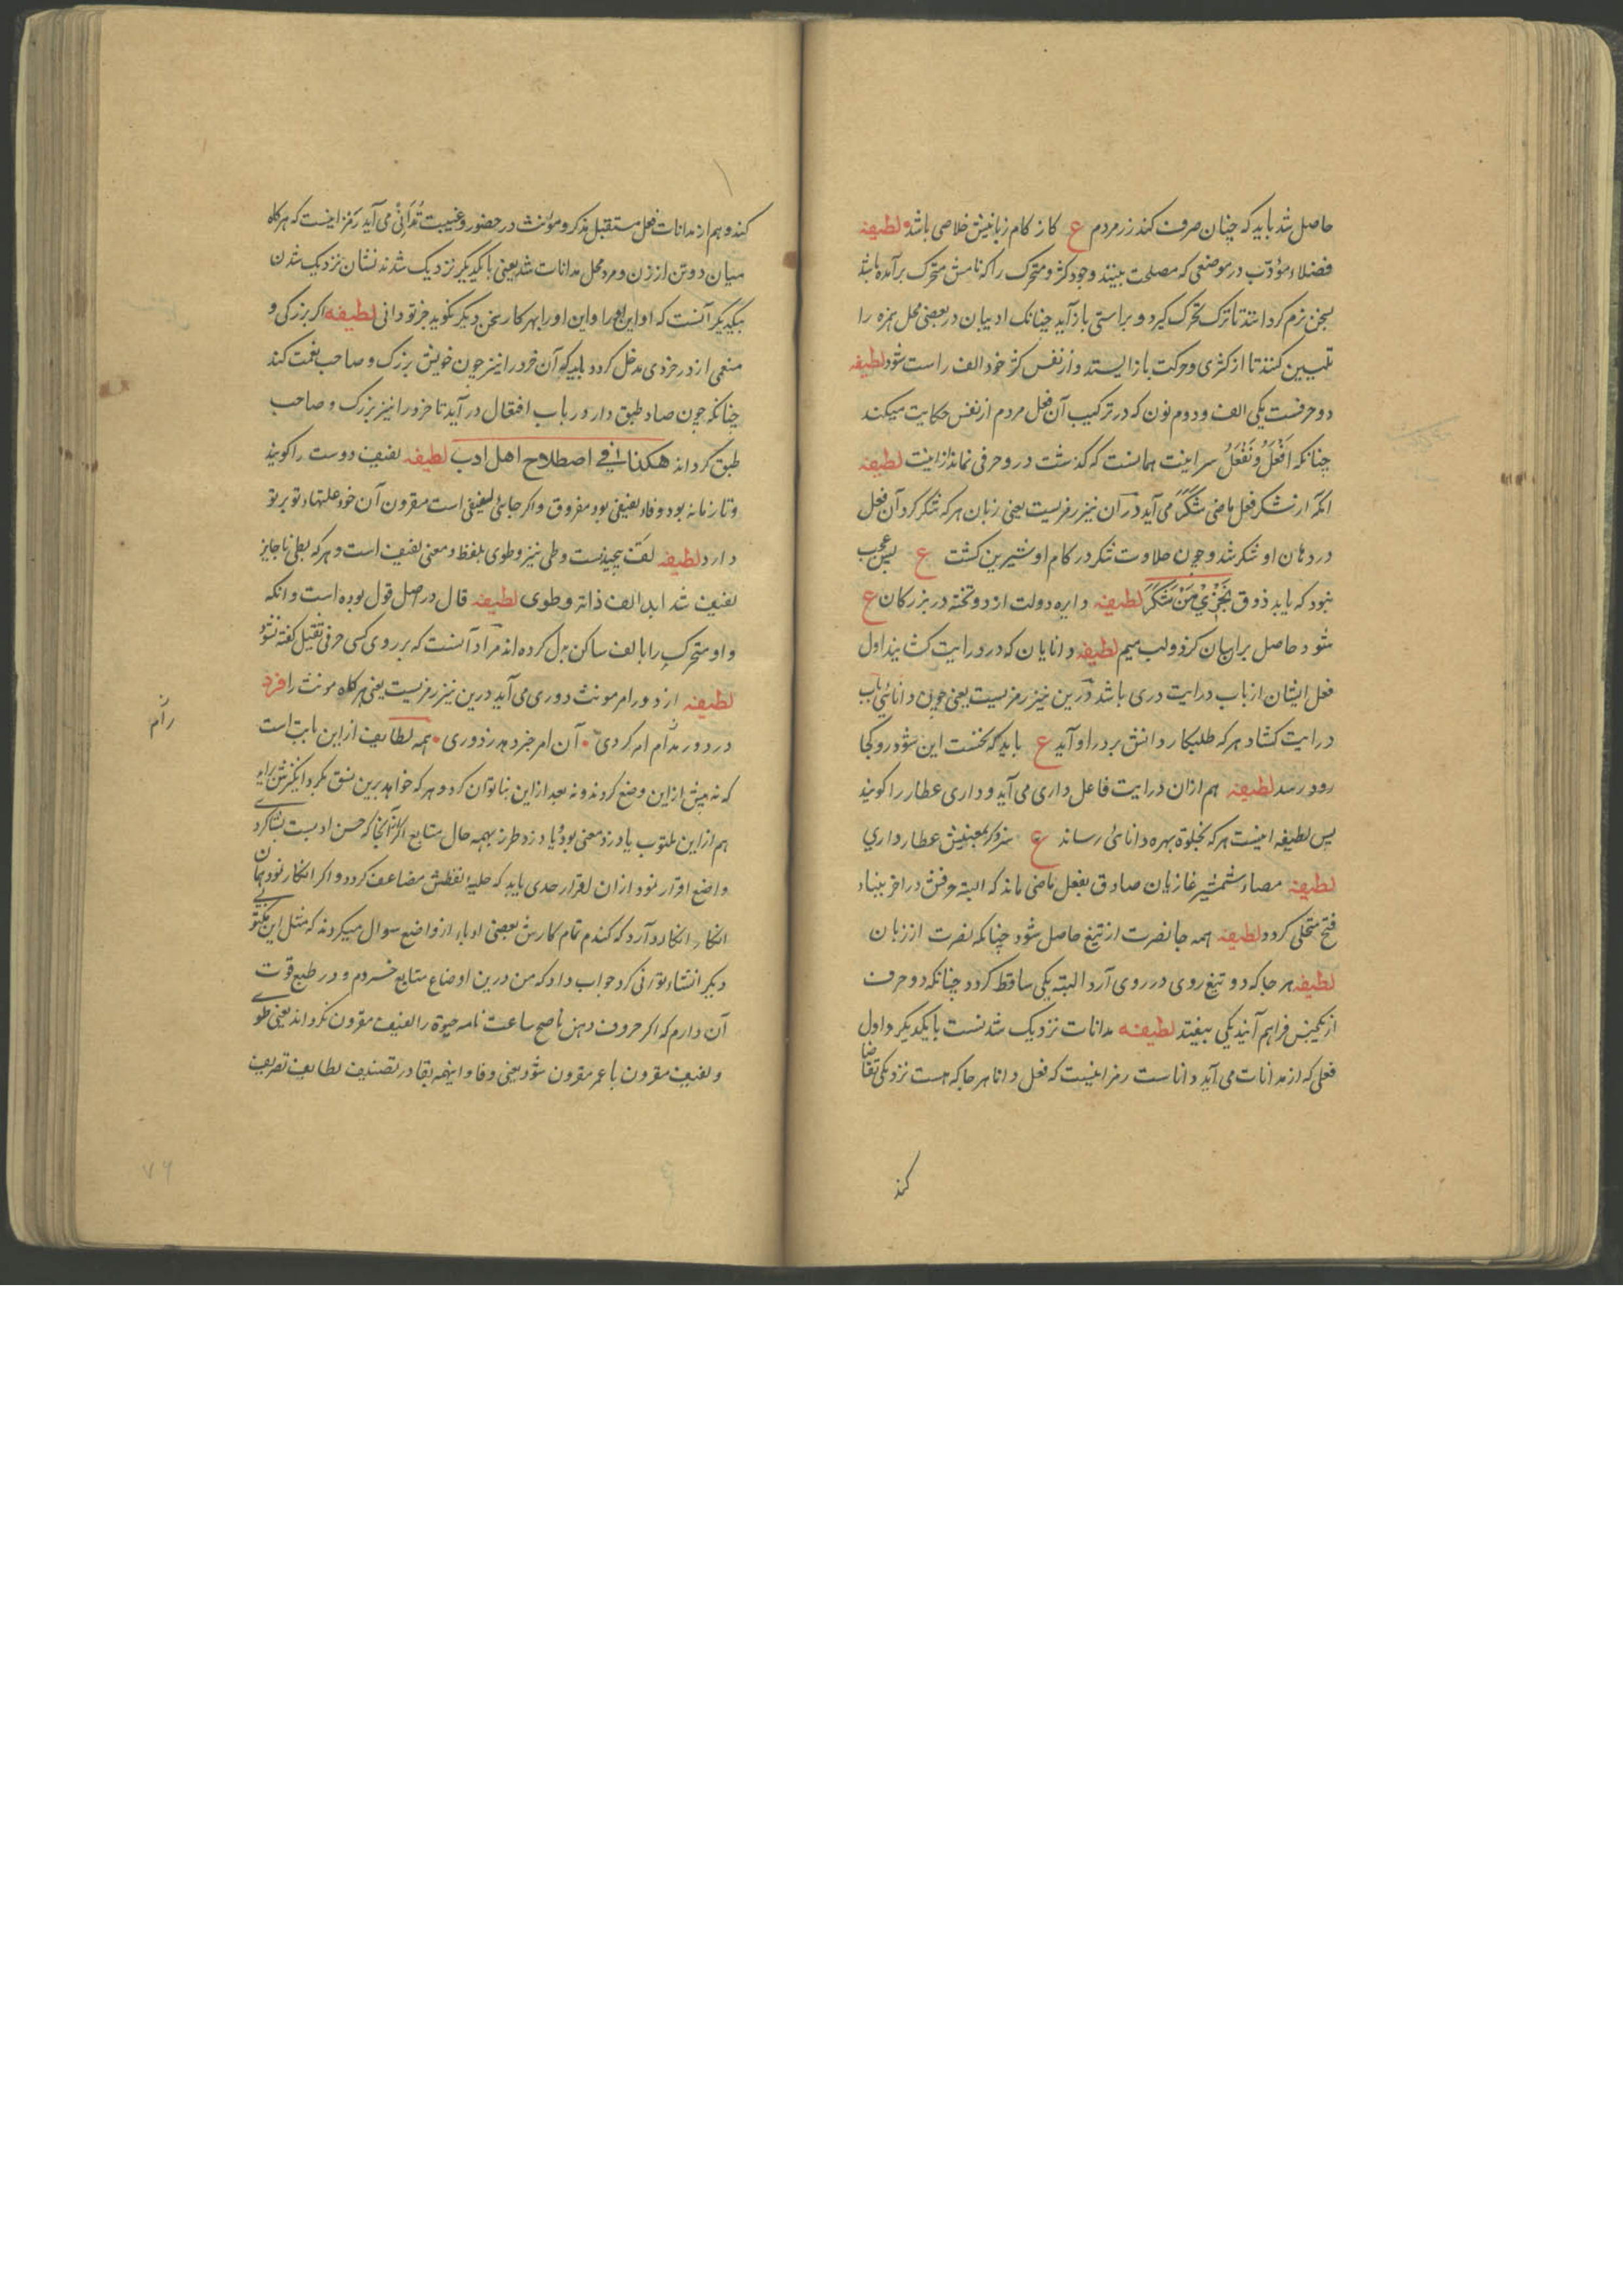 حاصل شد باید که چنان صرف کند زر مردم ع کاز کام زبانیش خلاصی باشد لطیفه
فضلاء مؤدب در موضعی که مصلحت بینند وجود کژ و متحرک را که نامش متحرک برآمده باشد
بجزم کردانند تا ترک تحرک کیرد و براستی بازآید چنانک ادیبان در بعضی محل همزه را
تلیین کنند تا از کژی و حرکت باز ایستد و از نفس کژ خود الف راست شود لطیفه
دو حرفست یکی الف و دوم نون که در ترکیب آن فعل مردم از نفس حکایت میکند
چنانکه اَفْعَلُ و نَفْعَلُ سر اینست همانست که کذشت در و حرفی نماند لطیفه
آنکه از شکر فعل ماضی شَکَرَ می آید در آن نیز رمزیست یعنی زبان هر که شکر کرد آن فعل
در دهان او شکر شد و چون حلاوت شکر در کام او شیرین کشت ع پس عجب
نبود که یابد ذوق نَجْزِي مَنْ شَكَرَ لطیفه دایره دولت از دو تخته در بزرکان ع
شود حاصل برایشان کردو لب میم لطیفه دانایان که در درایت کشایند اول
فعل ایشان از باب درایت دری باشد درین نیز رمزیست یعنی چون دانائی باب
درایت کشاد هر که طلبکار دانش بر در او آید ع باید که نخست این شود رو کجا
رود رسد لطیفه هم ازان درایت فاعل داری می آید و داری عطار را کویند
پس لطیفه اینست هر که بخلوة بهره دانائی رساند ع سزد کر بمعنیش عطار داری
لطیفه مصاء شمشیر غازیان صادق بفعل ماضی ماند که البته حرفش در آخر بیناء
فتح متحلی کردد لطیفه همه جا نصرت از تیغ حاصل شود چنانکه نصرت از زبان
لطیفه هر جا که دو تیغ روی در روی آرد البته یکی ساقط کردد چنانکه دو حرف
از یکجنس فراهم آیند یکی بیفتد لطیفه مدانات نزدیک شدنست بایکدیکر و اول
فعلی که از مدانات می آید داناست رمز اینست که فعل دانا هر جا که هست نزدیکی تقاضا
کند
کند و هم از مدانات فعل مستقبل مذکر و مونث در حضور و غیبت تُدَانِي می آید رمز اینست که هر کاه
میان دو تن از زن و مرد محل مدانات شد یعنی بایکدیکر نزدیک شدند نشان نزدیک شدن
بیکدیکر آنست که او این را و این او را بهر کار سخن دیکر نکوید جز تو دانی لطیفه اکر بزرکی و
منعمی از در خردی مدخل کردد باید که آن خرد را نیز چون خویش بزرک و صاحب نعمت کند
چنانکه چون صاد طبق دار در باب افتعال درآید تا خرد را نیز بزرک و صاحب
طبق کرداند هکذا فی اصطلاح اهل ادب لطیفه لفیف دوست را کویند
و تا زمانه بود وفاء لفیفی بود مفروق و اکر جائی لفیفی است مقرون آن خود علتهاء تو بر تو
دارد لطیفه لفّ پیچیدنست و طی نیز و طوی بلفظ و معنی لفیف است و هر که بعلی ناجایز
لفیف شد ابدا لف ذاته و طوی لطیفه قال در اصل قول بوده است و آنکه
واو متحرک را بالف ساکن بدل کرده اند مراد آنست که بر روی کسی حرفی ثقیل کفته نشود
لطیفه از دور امر مونث دوری می آید درین نیز رمزیست یعنی هر کاه مونث را فرد
در دور مدام امر کردی آن امر جز در هر ز دوری همه لطایف ازاین بابت است
که نه پیش ازاین وضع کردند و نه بعد ازاین بنا توان کرد و هر که خواهد برین نسق
هم ازاین مکتوب یا دزد معنی بود یا دزد طرز بهمه حال متابع
واضع اقرار نمود ازان اقرار حدی باید که حلیه لفظش مضاعف کردد و اکر انکار نمود
انکار انکار دو آرد که کندم تمام کارش بعضی ادباء از واضع سوال میکردند که مثل این مکتوبی
دیکر انشاء توانی کرد جواب داد که من درین اوضاع متابع خسردم و در طبع قوت
آن دارم که اکر حروف ذهن ناصح ساعت نامه حیوة را لفیف مقرون نکرداند یعنی طوی
و لفیف مقرون با عمر مقرون شود یعنی وفا و اینهمه بقا در تصنیف لطایف تصریف
۷۹